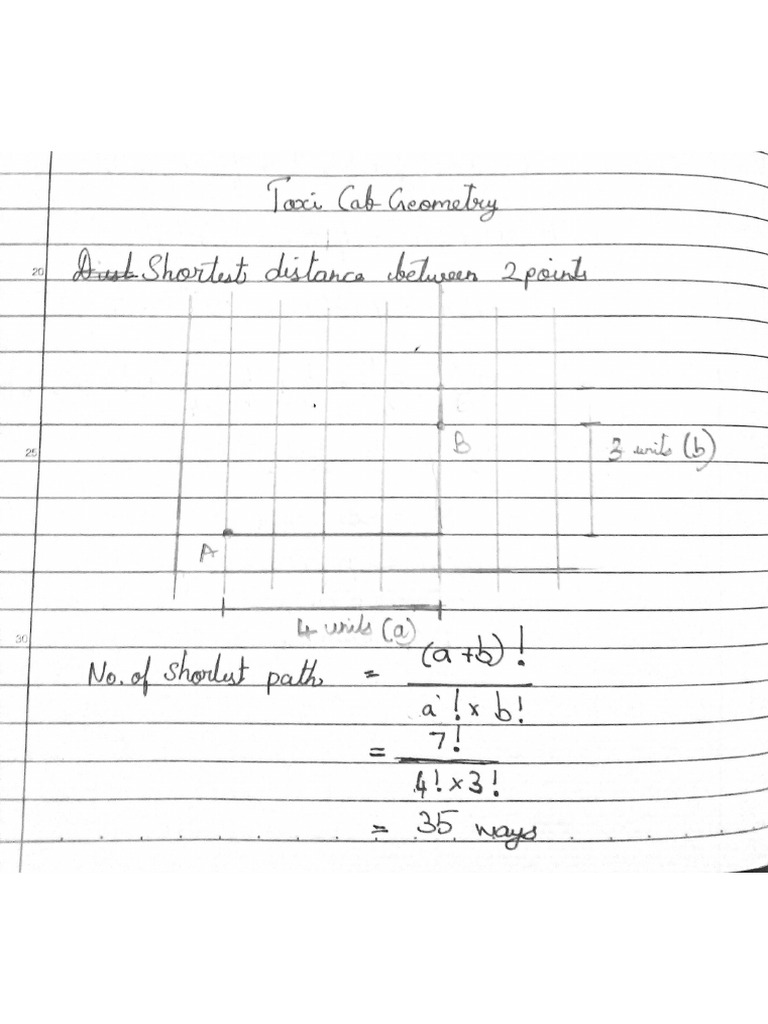 Taxi Cab Geometry
20
Dist Shortest distance between 2 points
B
3 units (b)
25
A
4 units (a)
30
No. of shortest paths = (a+b)!
a! × b!
= 7!
4! × 3!
= 35 ways